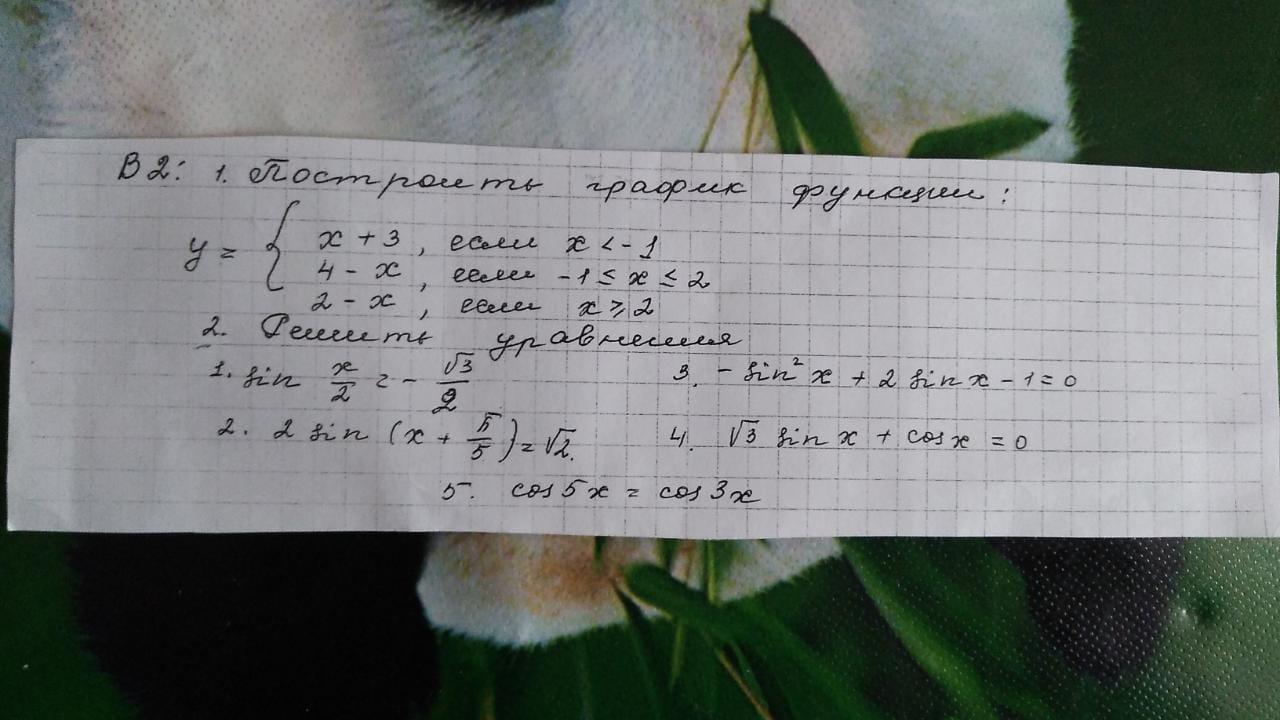 В 2: 1. Построить график функции:
y = { x + 3, если x < -1
4 - x, если -1 ≤ x ≤ 2
2 - x, если x ≥ 2
2. Решить уравнения
1. sin x/2 = - √3/2 3. - sin² x + 2 sin x - 1 = 0
2. 2 sin (x + π/5) = √2. 4. √3 sin x + cos x = 0
5. cos 5x = cos 3x